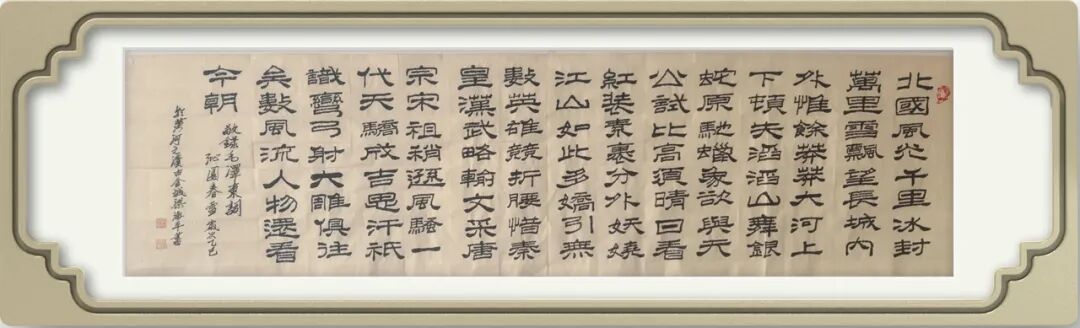 北國風光千里冰封
萬里雪飄望長城內
外惟餘莽莽大河上
下頓失滔滔山舞銀
蛇原馳蠟象欲與天
公試比高須晴日看
紅裝素裹分外妖嬈
江山如此多嬌引無
數英雄競折腰惜秦
皇漢武略輸文采唐
宗宋祖稍遜風騷一
代天驕成吉思汗祇
識彎弓射大雕俱往
矣數風流人物還看
今朝
敬錄毛澤東詞
沁園春雪歲次乙巳
於黃河之濱古金城梁書